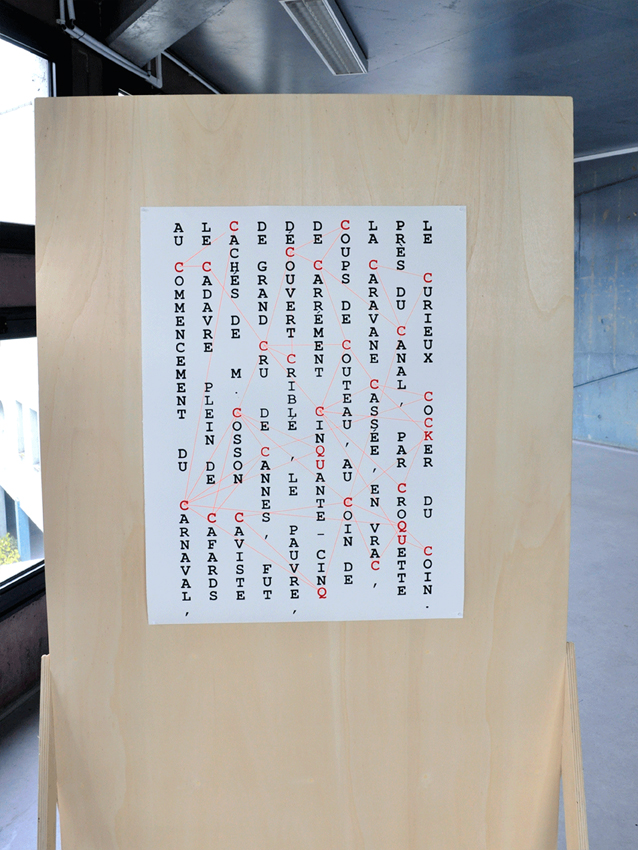 AU COMMENCEMENT DU CARNAVAL,
LE CADAVRE PLEIN DE CAFARDS
CACHÉS DE M. COSSON CAVISTE
DE GRAND CRU DE CANNES, FUT
DÉCOUVERT CRIBLÉ ,LE PAUVRE,
DE CARRÉMENT CINQUANTE-CINQ
COUPS DE COUTEAU, AU COIN DE
LA CARAVANE CASSÉE, EN VRAC,
PRÈS DU CANAL, PAR CROQUETTE
LE CURIEUX COCKER DU COIN.